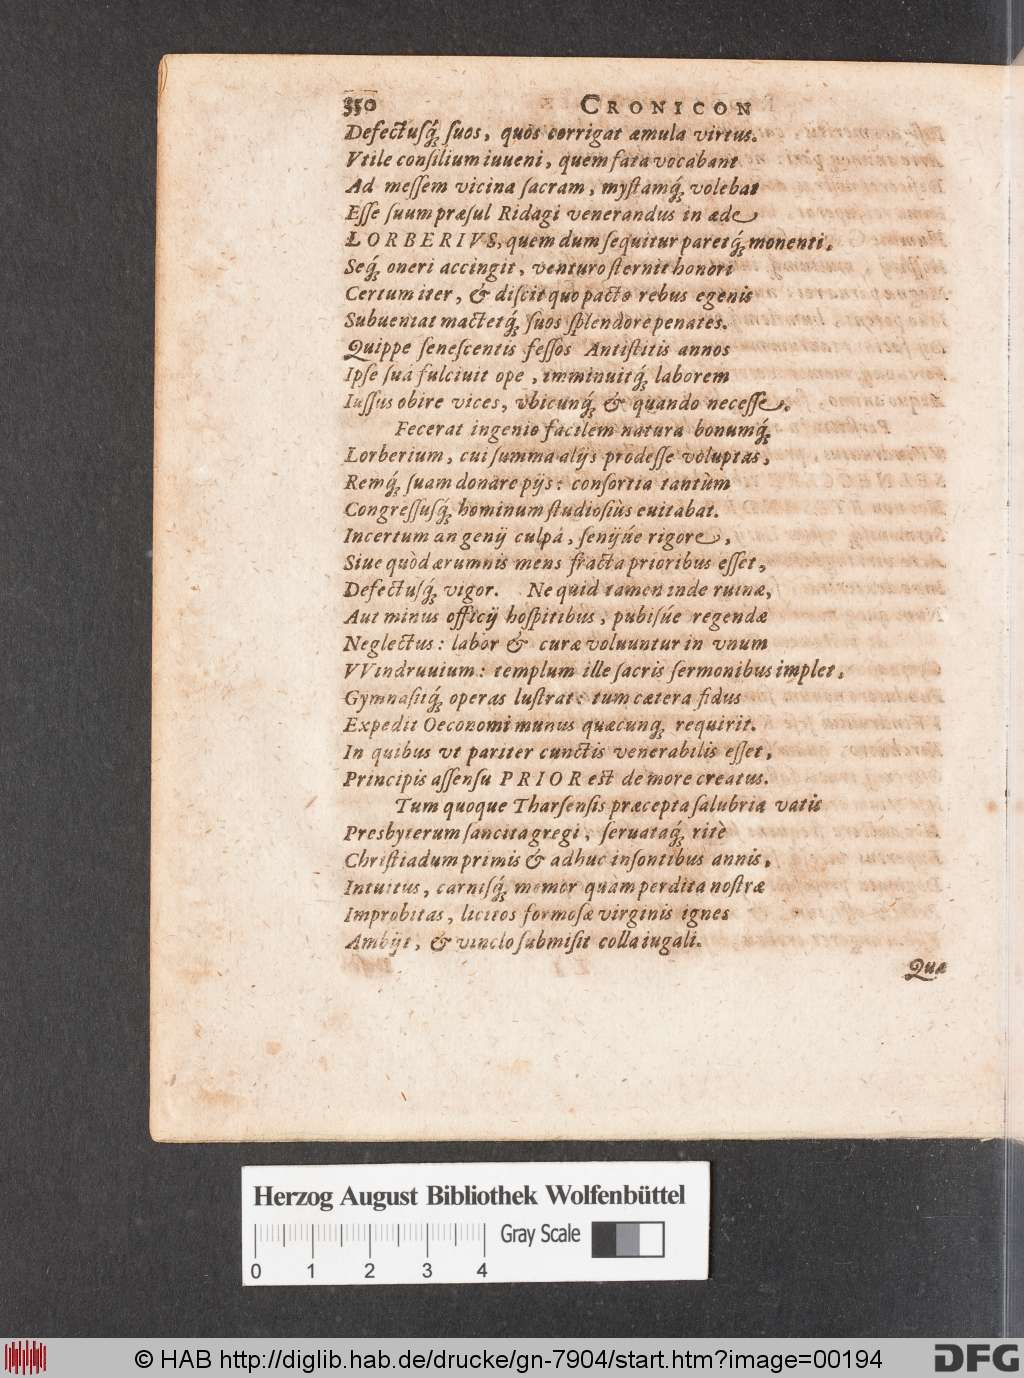 350 CRONICON
Defectusq́; suos, quos corrigat æmula virtus.
Vtile consilium iuueni, quem fata vocabant
Ad messem vicina sacram, mystamq́; volebat
Esse suum præsul Ridagi venerandus in æde
LORBERIVS, quem dum sequitur paretq́; monenti,
Seq́; oneri accingit, venturo sternit honori
Certum iter, & discit quo pacto rebus egenis
Subueniat mactetq́; suos splendore penates.
Quippe senescentis fessos Antistitis annos
Ipse suâ fulciuit ope, imminuitq́; laborem
Iussus obire vices, vbicunq́; & quando necesse.
Fecerat ingenio facilem natura bonumq́;
Lorberium, cui summa alijs prodesse voluptas,
Remq́; suam donare pijs: consortia tantùm
Congressusq́; hominum studiosiùs euitabat.
Incertum an genij culpâ, senijúe rigore,
Siue quòd ærumnis mens fracta prioribus esset,
Defectusq́; vigor. Ne quid tamen inde ruinæ,
Aut minus officij hospitibus, pubisúe regendæ
Neglectus: labor & curæ voluuntur in vnum
VVindruuium: templum ille sacris sermonibus implet,
Gymnasitq́; operas lustrat: tum cætera fidus
Expedit Oeconomi munus quæcunq; requirit.
In quibus vt pariter cunctis venerabilis esset,
Principis assensu PRIOR est de more creatus.
Tum quoque Tharsensis præcepta salubria vatis
Presbyterum sancita gregi, seruataq́; ritè
Christiadum primis & adhuc insontibus annis,
Intuitus, carnisq́; memor quam perdita nostræ
Improbitas, licitos formosæ virginis ignes
Ambijt, & vinclo submisit colla iugali.
Quæ
Herzog August Bibliothek Wolfenbüttel
Gray Scale
0 1 2 3 4
© HAB http://diglib.hab.de/drucke/gn-7904/start.htm?image=00194
DFG